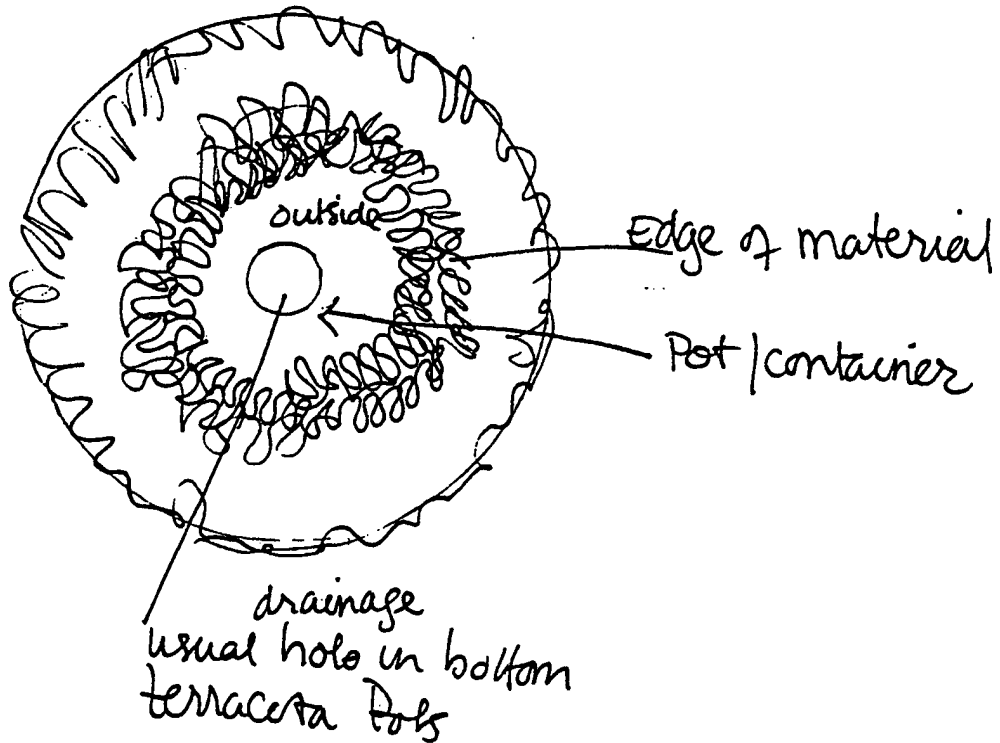 outside
Edge of material
Pot/container
drainage
usual hole in bottom
terracota Pots